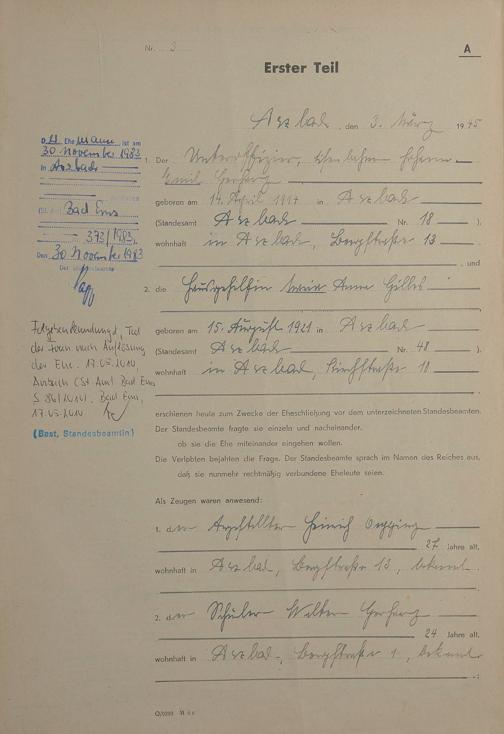 Nr. 3
A
Erster Teil
Arzbach, den 3. März 1945
1. Der Unteroffizier,
Emil Gerharz
geboren am 14. April 1917 in Arzbach
(Standesamt Arzbach Nr. 18 ).
wohnhaft in Arzbach, Bergstraße 13
und
2. die Hausgehilfin Anna Gilles
geboren am 15. August 1921 in Arzbach
(Standesamt Arzbach Nr. 48 ).
wohnhaft in Arzbach, Kirchstraße 11
erschienen heute zum Zwecke der Eheschließung vor dem unterzeichneten Standesbeamten.
Der Standesbeamte fragte sie einzeln und nacheinander,
ob sie die Ehe miteinander eingehen wollen.
Die Verlobten bejahten die Frage. Der Standesbeamte sprach im Namen des Reiches aus,
daß sie nunmehr rechtmäßig verbundene Eheleute seien.
Als Zeugen waren anwesend:
1. der Angestellte Heinrich
27 Jahre alt,
wohnhaft in Arzbach, Bergstraße 13, bekannt
2. der Schüler Walter Gerharz
24 Jahre alt,
wohnhaft in Arzbach, Bergstraße 1, bekannt
;
D.. Ehemann ist am
30. November 1983
in Arzbach
Bad Ems
373/1983
Den 30. November 1983
Der Standesbeamte
Folgebeurkundung, Tod
der Frau nach Auflösung
der Ehe. 17.05.2010,
Arzbach (St. Amt Bad Ems
S 86/2010). Bad Ems,
17.05.2010
(Best, Standesbeamtin)